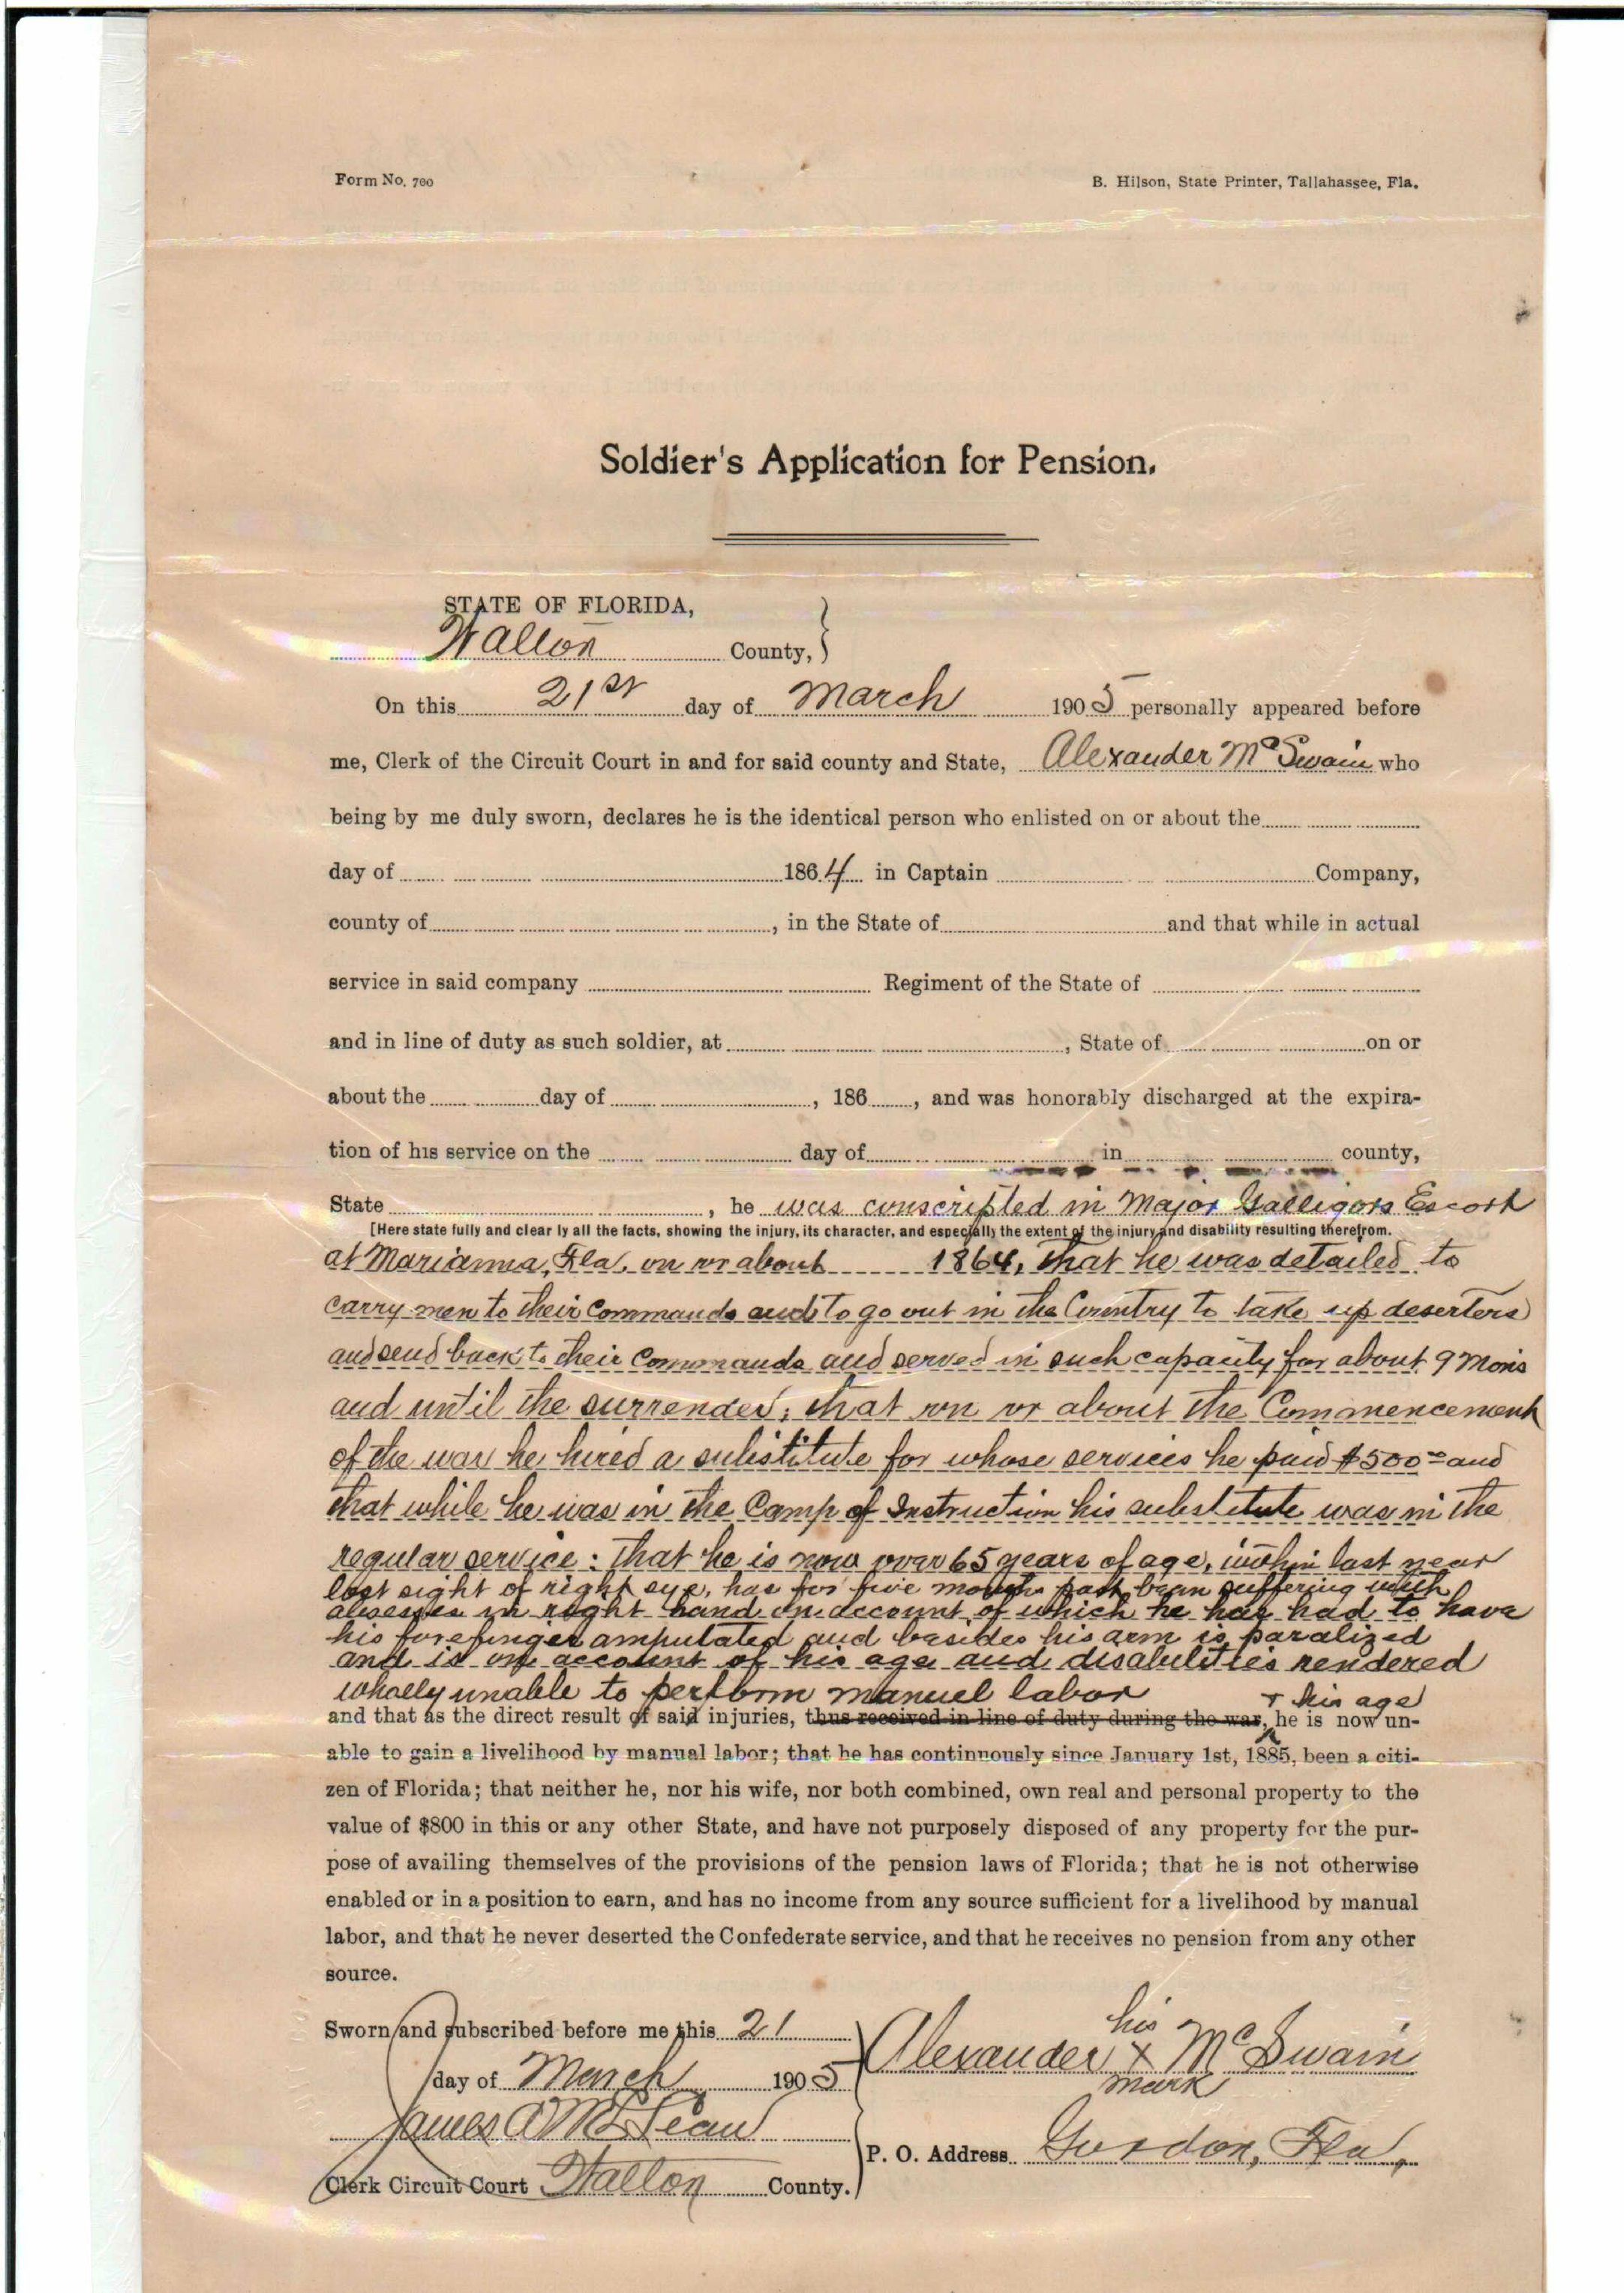 Form No. 700
B. Hilson, State Printer, Tallahassee, Fla.
Soldier's Application for Pension.
STATE OF FLORIDA,
Walton County,
On this 21st day of March 1905 personally appeared before
me, Clerk of the Circuit Court in and for said county and State, Alexander McSwain who
being by me duly sworn, declares he is the identical person who enlisted on or about the
day of 1864 in Captain Company,
county of , in the State of and that while in actual
service in said company Regiment of the State of
and in line of duty as such soldier, at , State of on or
about the day of , 186 , and was honorably discharged at the expira-
tion of his service on the day of in county,
State , he was conscripted in Major Galligors Escort
[Here state fully and clearly all the facts, showing the injury, its character, and especially the extent of the injury and disability resulting therefrom.
at Marianna, Fla. on or about 1864, that he was detailed to
carry men to their Commands and to go out in the Country to take up deserters
and send back to their Commands and served in such capacity for about 9 Mons
and until the surrender; that on or about the Commencement
of the war he hired a substitute for whose services he paid $500 and
that while he was in the Camp of Instruction his substitute was in the
regular service: that he is now over 65 years of age, within last year
lost sight of right eye, has for five months past been suffering with
absesses in right hand on account of which he has had to have
his forefinger amputated and besides his arm is paralized
and is on account of his age and disabilities rendered
wholly unable to perform manuel labor
+ his age
and that as the direct result of said injuries, thus received in line of duty during the war, he is now un-
able to gain a livelihood by manual labor; that he has continuously since January 1st, 1885, been a citi-
zen of Florida; that neither he, nor his wife, nor both combined, own real and personal property to the
value of $800 in this or any other State, and have not purposely disposed of any property for the pur-
pose of availing themselves of the provisions of the pension laws of Florida; that he is not otherwise
enabled or in a position to earn, and has no income from any source sufficient for a livelihood by manual
labor, and that he never deserted the Confederate service, and that he receives no pension from any other
source.
Sworn and subscribed before me this 21
day of March 1905
James A McLean
Clerk Circuit Court Walton County.
his
Alexander x McSwain
mark
P. O. Address Gordon, Fla,